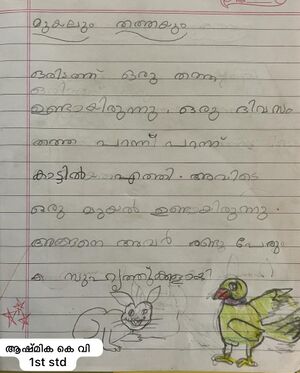 മുയലും തത്തയും
ഒരിടത്ത് ഒരു തത്ത
ഉണ്ടായിരുന്നു. ഒരു ദിവസം
തത്ത പറന്ന് പറന്ന്
കാട്ടിൽ എത്തി. അവിടെ
ഒരു മുയൽ ഉണ്ടായിരുന്നു.
അങ്ങനെ അവർ രണ്ടു പേരും
സുഹൃത്തുക്കളായി
ആഷ്മിക കെ വി
1st std